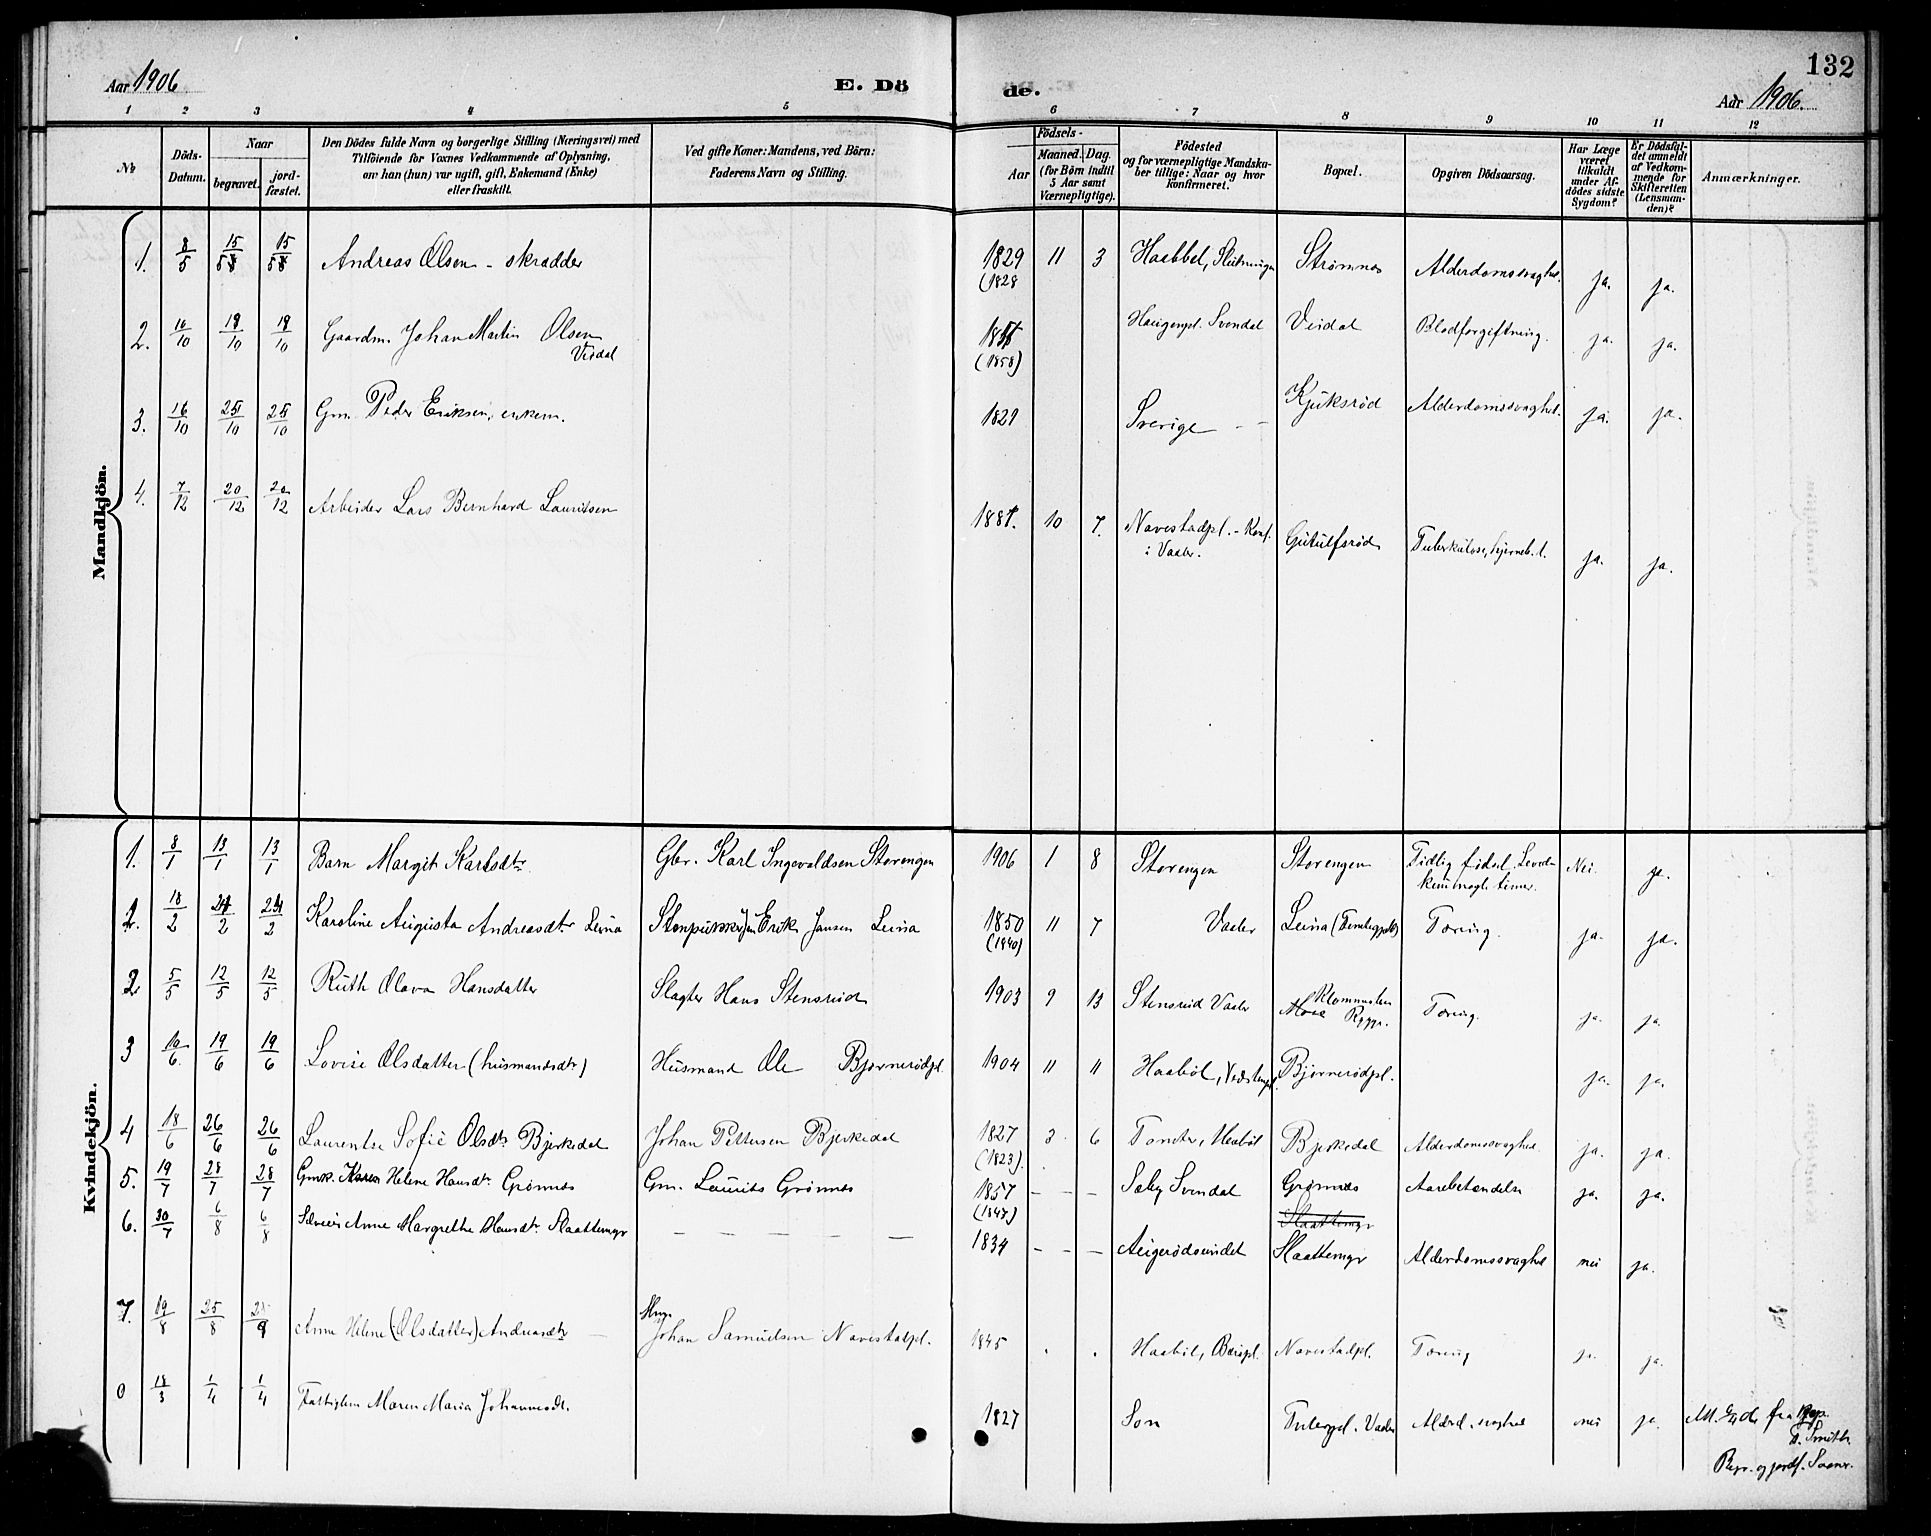 132
Aar 1906
E. Dö
de.
Aar 1906.
1 2 3 4 5 6 7 8 9 10 11 12
No
Döds-Datum.
Naar
begravet.
jord-fæstet.
Den Dödes fulde Navn og borgerlige Stilling (Næringsvei) med
Tilföiende for Voxnes Vedkommende af Oplysning,
om han (hun) var ugift, gift, Enkemand (Enke)
eller fraskilt.
Ved gifte Koner: Mandens, ved Börn:
Faderens Navn og Stilling.
Födsels-
Aar
Maaned.
Dag.
(for Börn indtil
5 Aar samt
Værnepligtige).
Födested
og for værnepligtige Mandska-
ber tillige: Naar og hvor
konfirmeret.
Bopæl.
Opgiven Dödsaarsag.
Har Læge
været
tilkaldt
under Af-
dödes sidste
Sygdom?
Er Dödsfal-
det anmeldt
af Vedkom-
mende for
Skifteretten
(Lensman-
den)?
Anmærkninger.
Mandkjön.
1. 8/5 15/5 15/5 Andreas Olsen - skrædder 1829 (1828 11 3 Haabbel, Strømnes Alderdomssvaghed. ja. ja.
2. 10/10 19/10 19/10 Gaardm. Johan Martin Olsen Veidal (1858) Haugenpl. Svendal Veidal Blodforgiftning. ja. ja.
3. 16/10 25/10 25/10 Gm. Peder Eriksen, enkem. 1829 Sverige - - Kjuksrød Alderdomssvaghed. ja. ja.
4. 7/12 20/12 20/12 Arbeider Lars Bernhard Lauritsen 1881. 10 7. Navestadpl. - Konf. i Vaaler. Gutulfsrød Tuberkulose, hjerneb. t. ja. ja.
Kvindekjön.
1. 8/1 13/1 13/1 Barn Margit Karlsdtr. Gbr. Karl Ingevaldsen Storengen 1906 1 8 Storengen Storengen Tidlig födsel. Nei. ja.
2. 18/2 24/2 24/2 Karoline Augusta Andreasdtr Leina Erik Jansen Leina 1850 (1840) 11 7 Vaaler Leina Tæring. ja. ja.
2 5/5 12/5 12/5 Ruth Olava Hansdatter Slagter Hans Stensrud 1903 9 13 Stensrud Vaaler Rygge. Tæring. ja. ja.
3 10/6. 19/6 19/6 Lovise Olsdatter (husmandsdtr) Husmand Ole Bjørnerødpl. 1904 11 11 Haabøl, Bjørnerødpl. ja. ja.
4 18/6 26/6 26/6 Laurentse Sofie Olsdtr. Bjerkedal Johan Pettersen Bjerkedal 1827 (1823). 3. 6 Tomter, Haabøl Bjerkedal Alderdomssvaghed. ja. ja.
5. 19/7 28/7 28/7 Gmk. Karen Helene Hansdtr. Grønnes Gm. Laurits Grønnes 1857 (1847) - - Sæby Svendal Grønnes Aarebetændelse ja. ja.
6. 30/7 6/8 6/8 Anne Margrethe Hansdtr Slaattemyr - - - - - 1834 - - Augerødeindet Slaattemyr Slaattemyr Alderdomssvaghed nei ja.
7. 19/8 25/8 Anne Helene (Olsdatter) Andreasdtr Johan Samuelsen Navestadpl. 1845 . . Haabøl, Navestadpl. Tæring ja. ja.
0 18/3 1/4 1/4 Fattiglem Maren Maria Johannesdt. 1827 Son Vaaler Alderd. svaghed nei ja. Att. 6/4 d. fra
Smith.
Begr. og jordf. Soner.